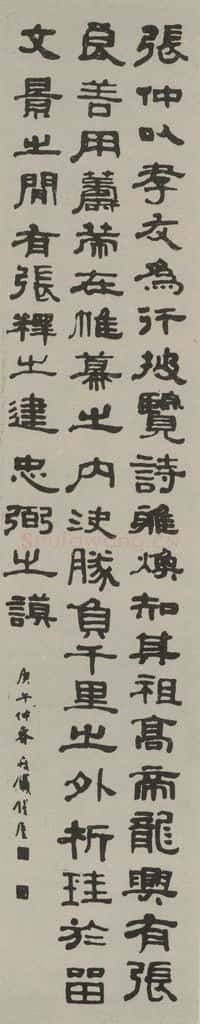 張仲以孝友為行披覽詩雅煥知其祖高帝龍興有張
良善用籌策在帷幕之內決勝負千里之外析珪於留
文景之間有張釋之建忠弼之謨
庚午仲春